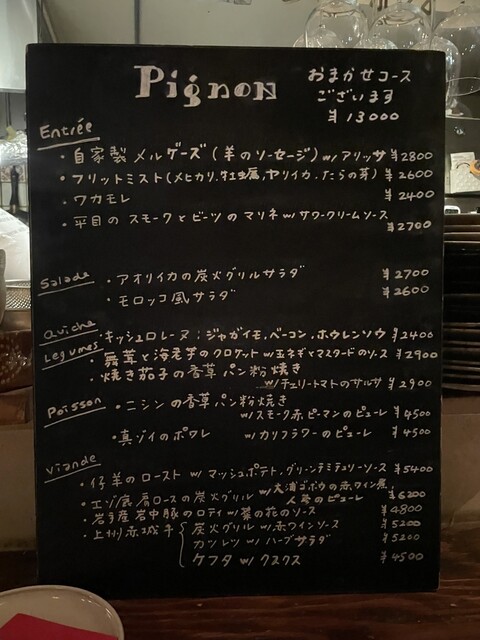 Pignon
おまかせコース
ございます
¥13000
Entrée
・自家製メルゲーズ(羊のソーセージ)w/アリッサ ¥2800
・フリットミスト(メヒカリ、牡蠣、ヤリイカ、たらの芽) ¥2600
・ワカモレ ¥2400
・平目のスモークとビーツのマリネ w/サワークリームソース
¥2700
Salade ・アオリイカの炭火グリルサラダ ¥2700
・モロッコ風サラダ ¥2600
Quiche ・キッシュロレーヌ:ジャガイモ、ベーコン、ホウレンソウ ¥2400
Legumes ・舞茸と海老芋のクロケット w/玉ネギとマスタードのソース ¥2900
・焼き茄子の香草パン粉焼き
w/チェリートマトのサルサ ¥2900
Poisson ・ニシンの香草パン粉焼き
w/スモーク赤ピーマンのピューレ ¥4500
・真ゾイのポワレ w/カリフラワーのピューレ ¥4500
Viande
・仔羊のロースト w/マッシュポテト、グリーンデミデュリーソース ¥5400
・エゾ鹿肩ロースの炭火グリル w/大浦ゴボウの赤ワイン煮、
人参のピューレ ¥6200
・岩手産岩中豚のロティ w/菜の花のソース ¥4800
・上州赤城牛 炭火グリル w/赤ワインソース ¥5200
カツレツ w/ハーブサラダ ¥5200
ケフタ w/クスクス ¥4500